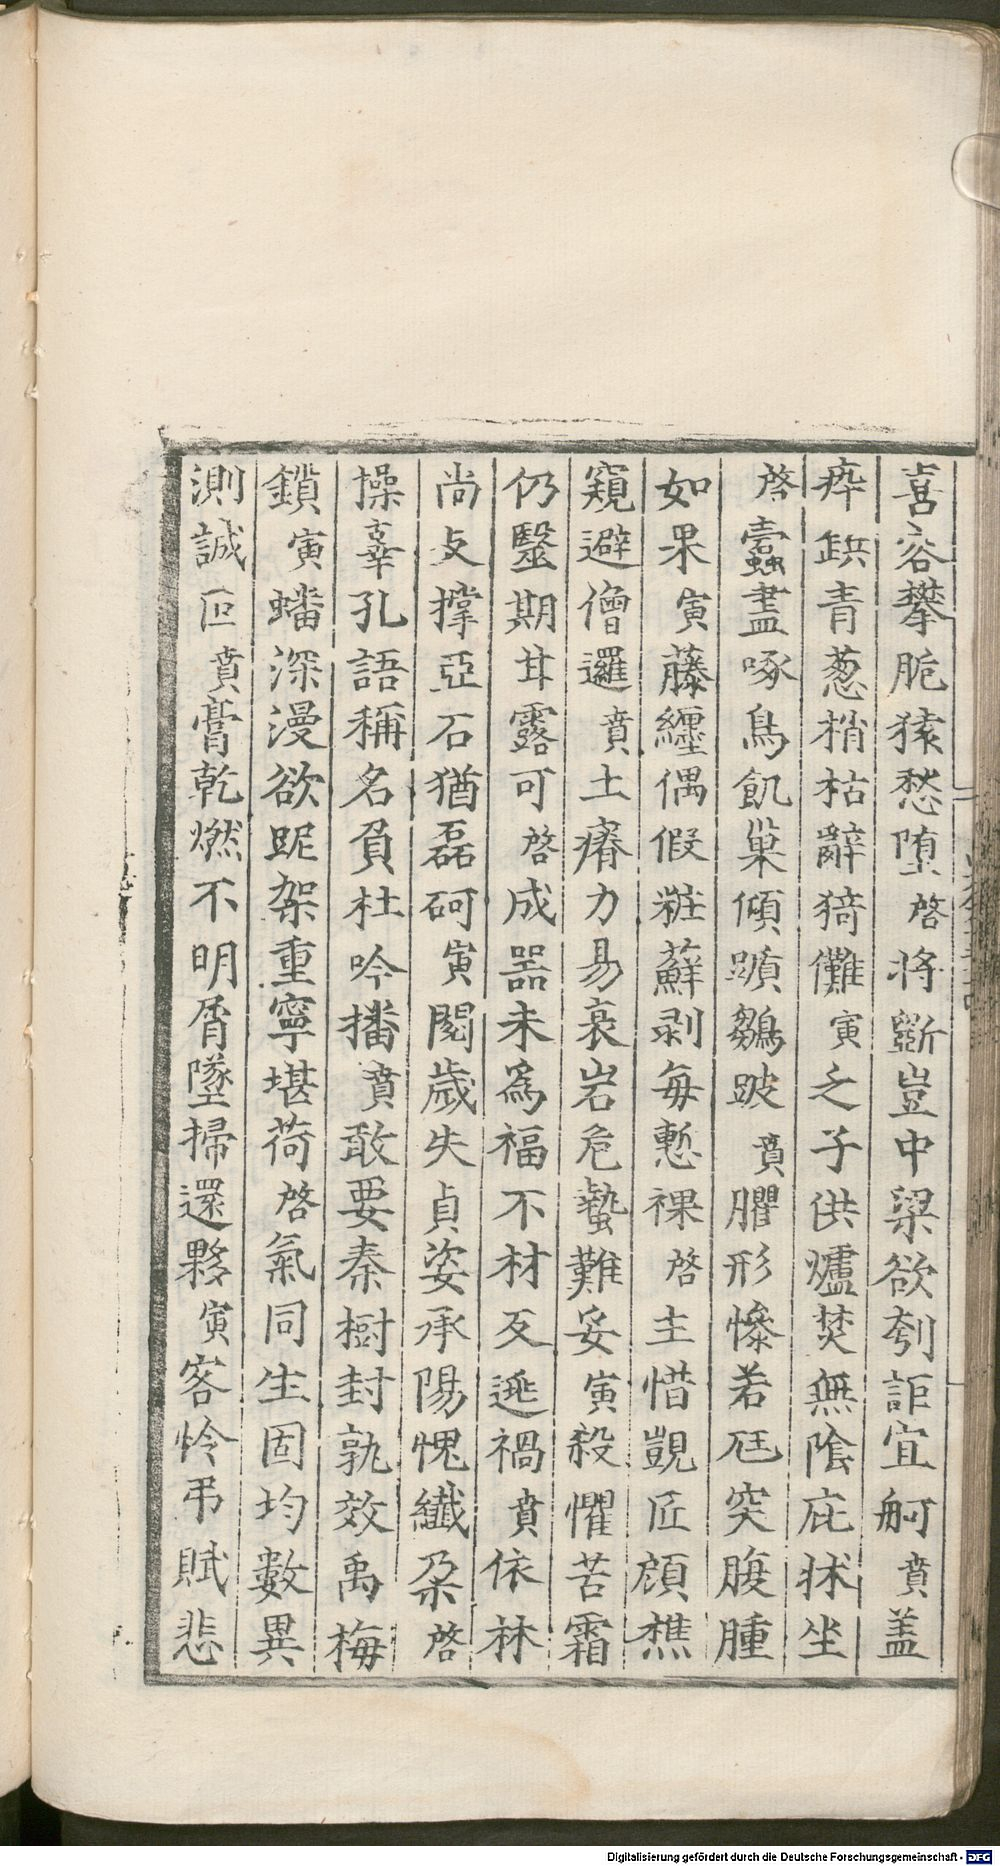 喜容攀脆猿愁堕啓將斲豈中梁欲刳詎宜舸賁盖
瘁缺青葱梢枯辭猗儺寅之子供爐焚無陰庇牀坐
啓蠧盡啄鳥飢巢傾蹎鶵跛賁臞形慘若尫突腹腫
如果寅藤纏偶假粧蘚剥每慙裸啓主惜覬匠顔樵
窺避僧邏賁土瘠力易衰岩危蟄難妥寅殺懼苦霜
仍毉期甘露可啓成器未爲福不材反逃禍賁依林
尚攴撐亞石猶磊砢寅閱歲失貞姿承陽愧纖朶啓
操辜孔語稱名負杜吟播賁敢要秦樹封孰效禹梅
鎖寅蟠深漫欲跜架重寧堪荷啓氣同生固均數異
測誠叵賁膏乾燃不明屑墜掃還夥寅客怜弔賦悲
Digitalisierung gefördert durch die Deutsche Forschungsgemeinschaft - DFG